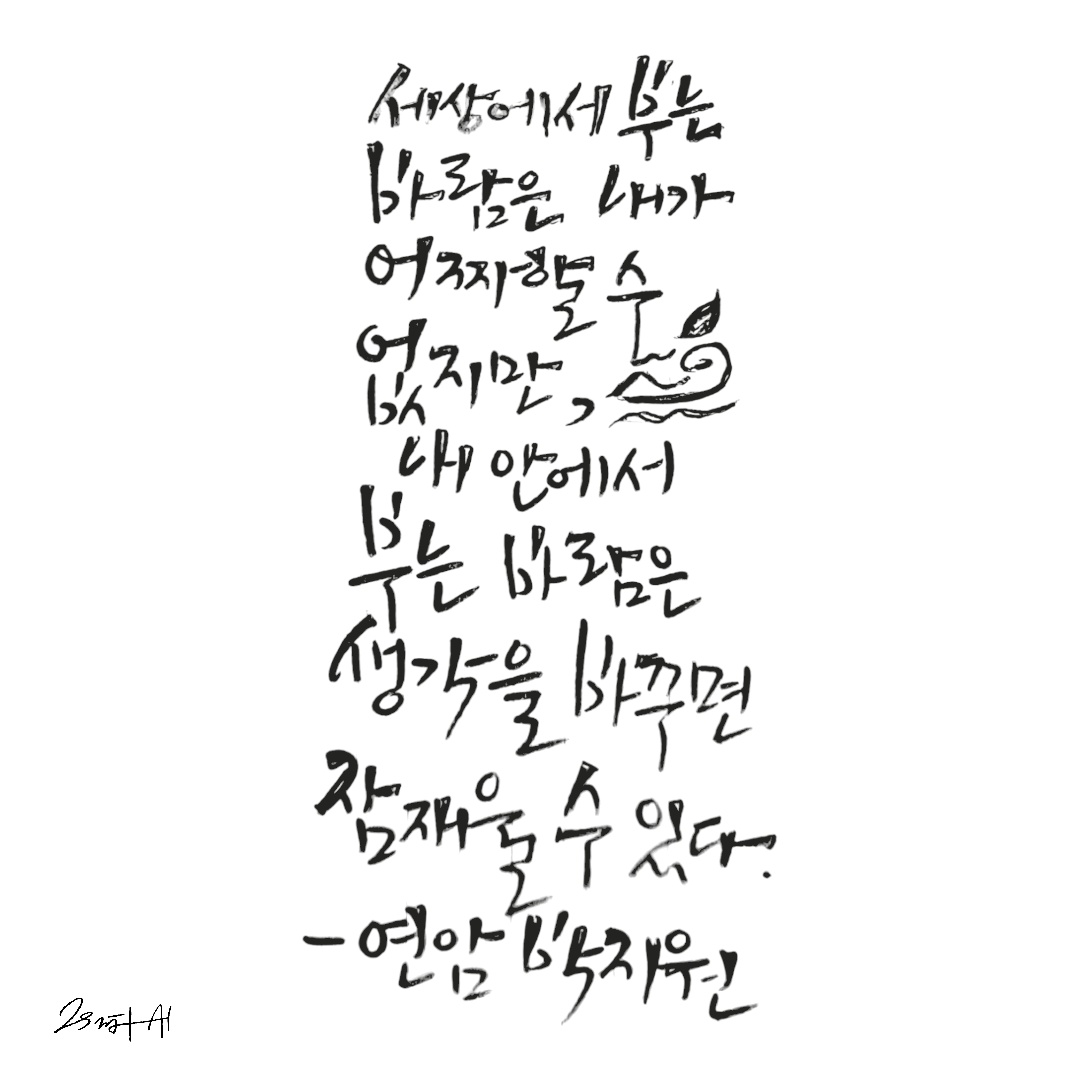 세상에서 부는
바람은 내가
어찌할 수
없지만,
내 안에서
부는 바람은
생각을 바꾸면
잠재울 수 있다.
- 연암 박지원